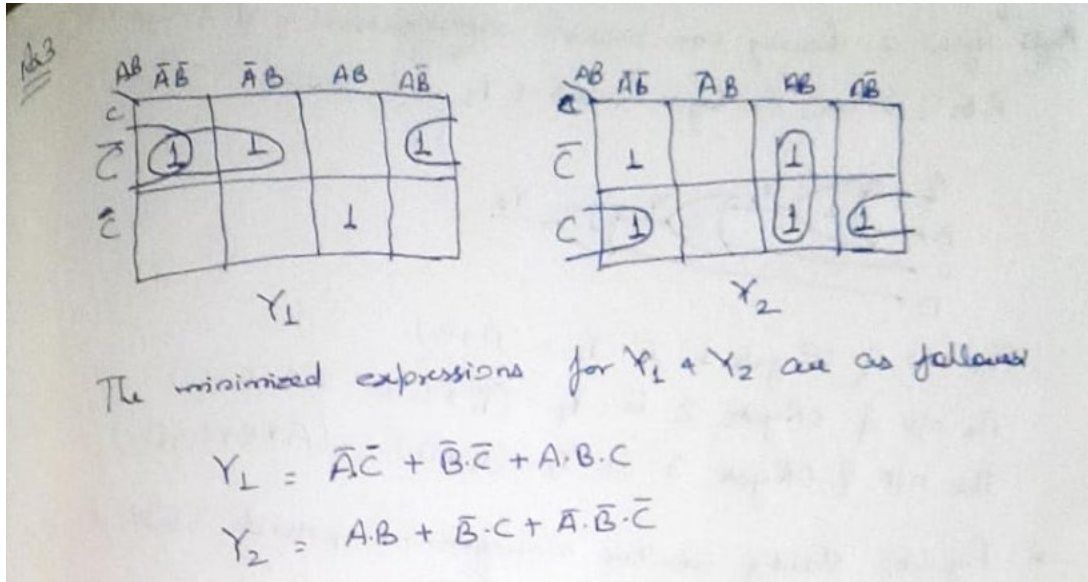 AB A̅B̅ A̅B AB AB̅
C
C̅ 1 1 1
C 1
Y₁
AB A̅B̅ A̅B AB AB̅
C̅ 1 1
C 1 1 1
Y₂
The minimized expressions for Y₁ & Y₂ are as follows
Y₁ = A̅C̅ + B̅.C̅ + A.B.C
Y₂ = A.B + B̅.C + A̅.B̅.C̅